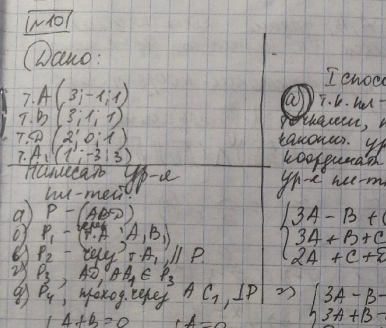 №10
Дано:
т. A (3; -1; 1)
т. B (3; 1; 1)
т. D (2; 0; 1)
т. A₁ (1; -3; 3)
Написать ур-я
пл-тей:
а) P - (ABD)
б) P₁ - (т.A A₁ B₁)
в) P₂ - через т A₁ // P.
г) P₃, AD, AA₁ ∈ P₃
д) P₄, проход. через A C₁, ⊥P
A+B=0
I спосо
а) т.к. пл
точками,
канонич. ур
координат
ур-е пл-т
3A - B + C
3A + B + C
2A + C +
=> 3A - B -
3A + B -